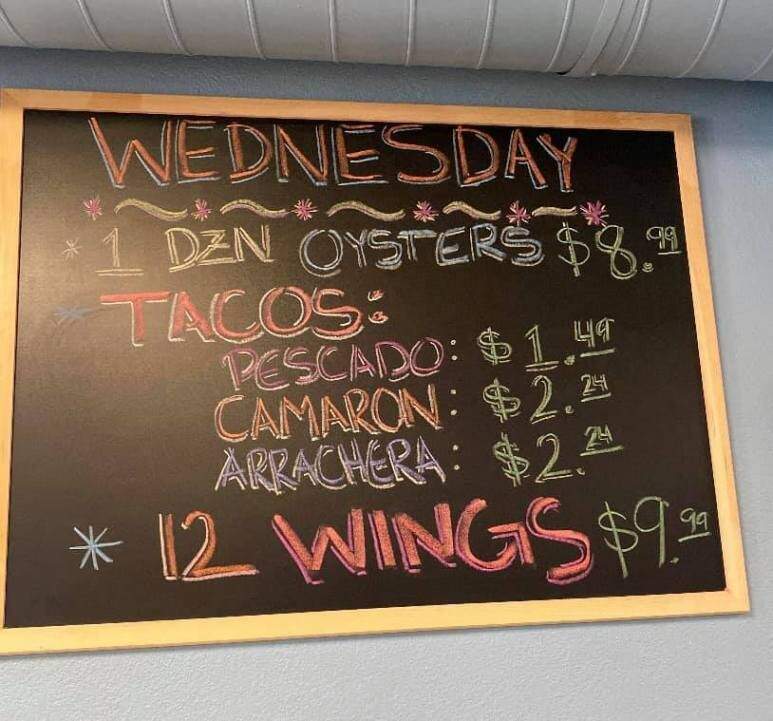 WEDNESDAY
* 1 DZN OYSTERS $8.99
* TACOS:
PESCADO: $1.49
CAMARON: $2.24
ARRACHERA: $2.24
* 12 WINGS $9.99